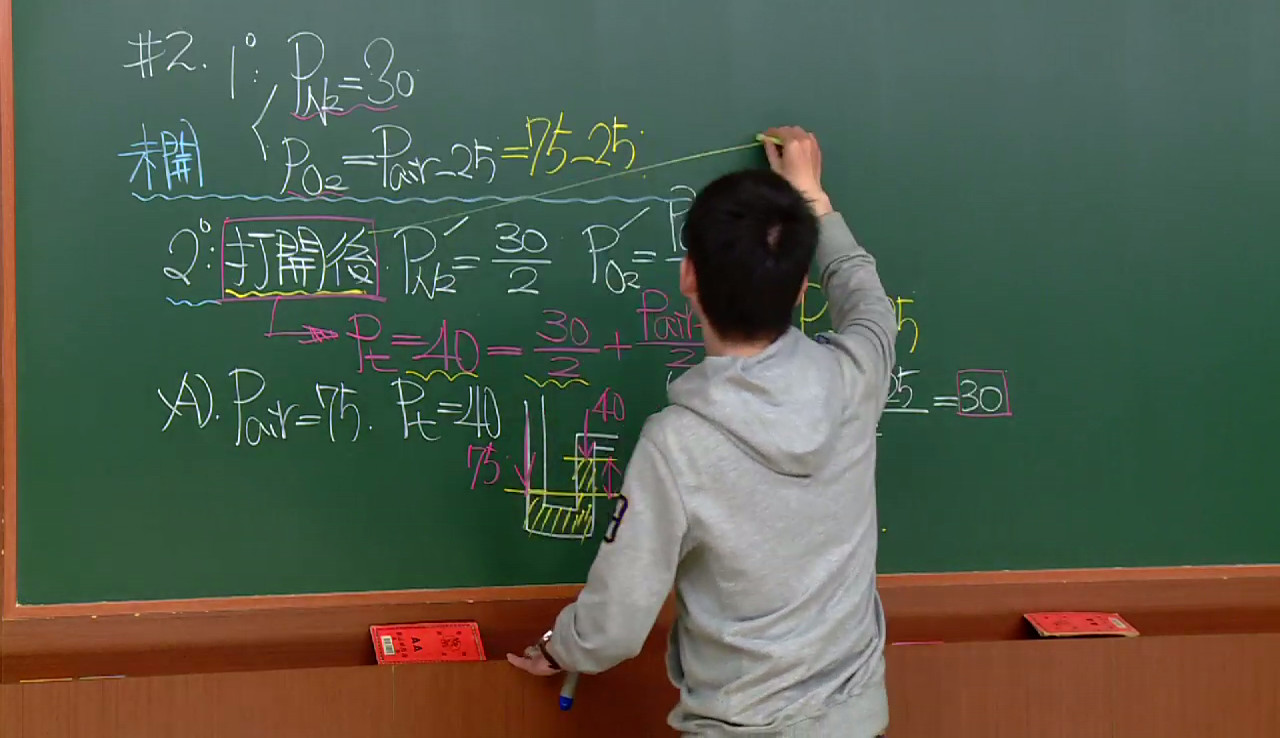 #2. 1°: P_N₂=30
未開 P_O₂=Pair-25=75-25
2°: 打開後 P_N₂′=30/2 P_O₂′=
Pt=40=30/2+Pair
A). Pair=75. Pt=40
40
75
25=30